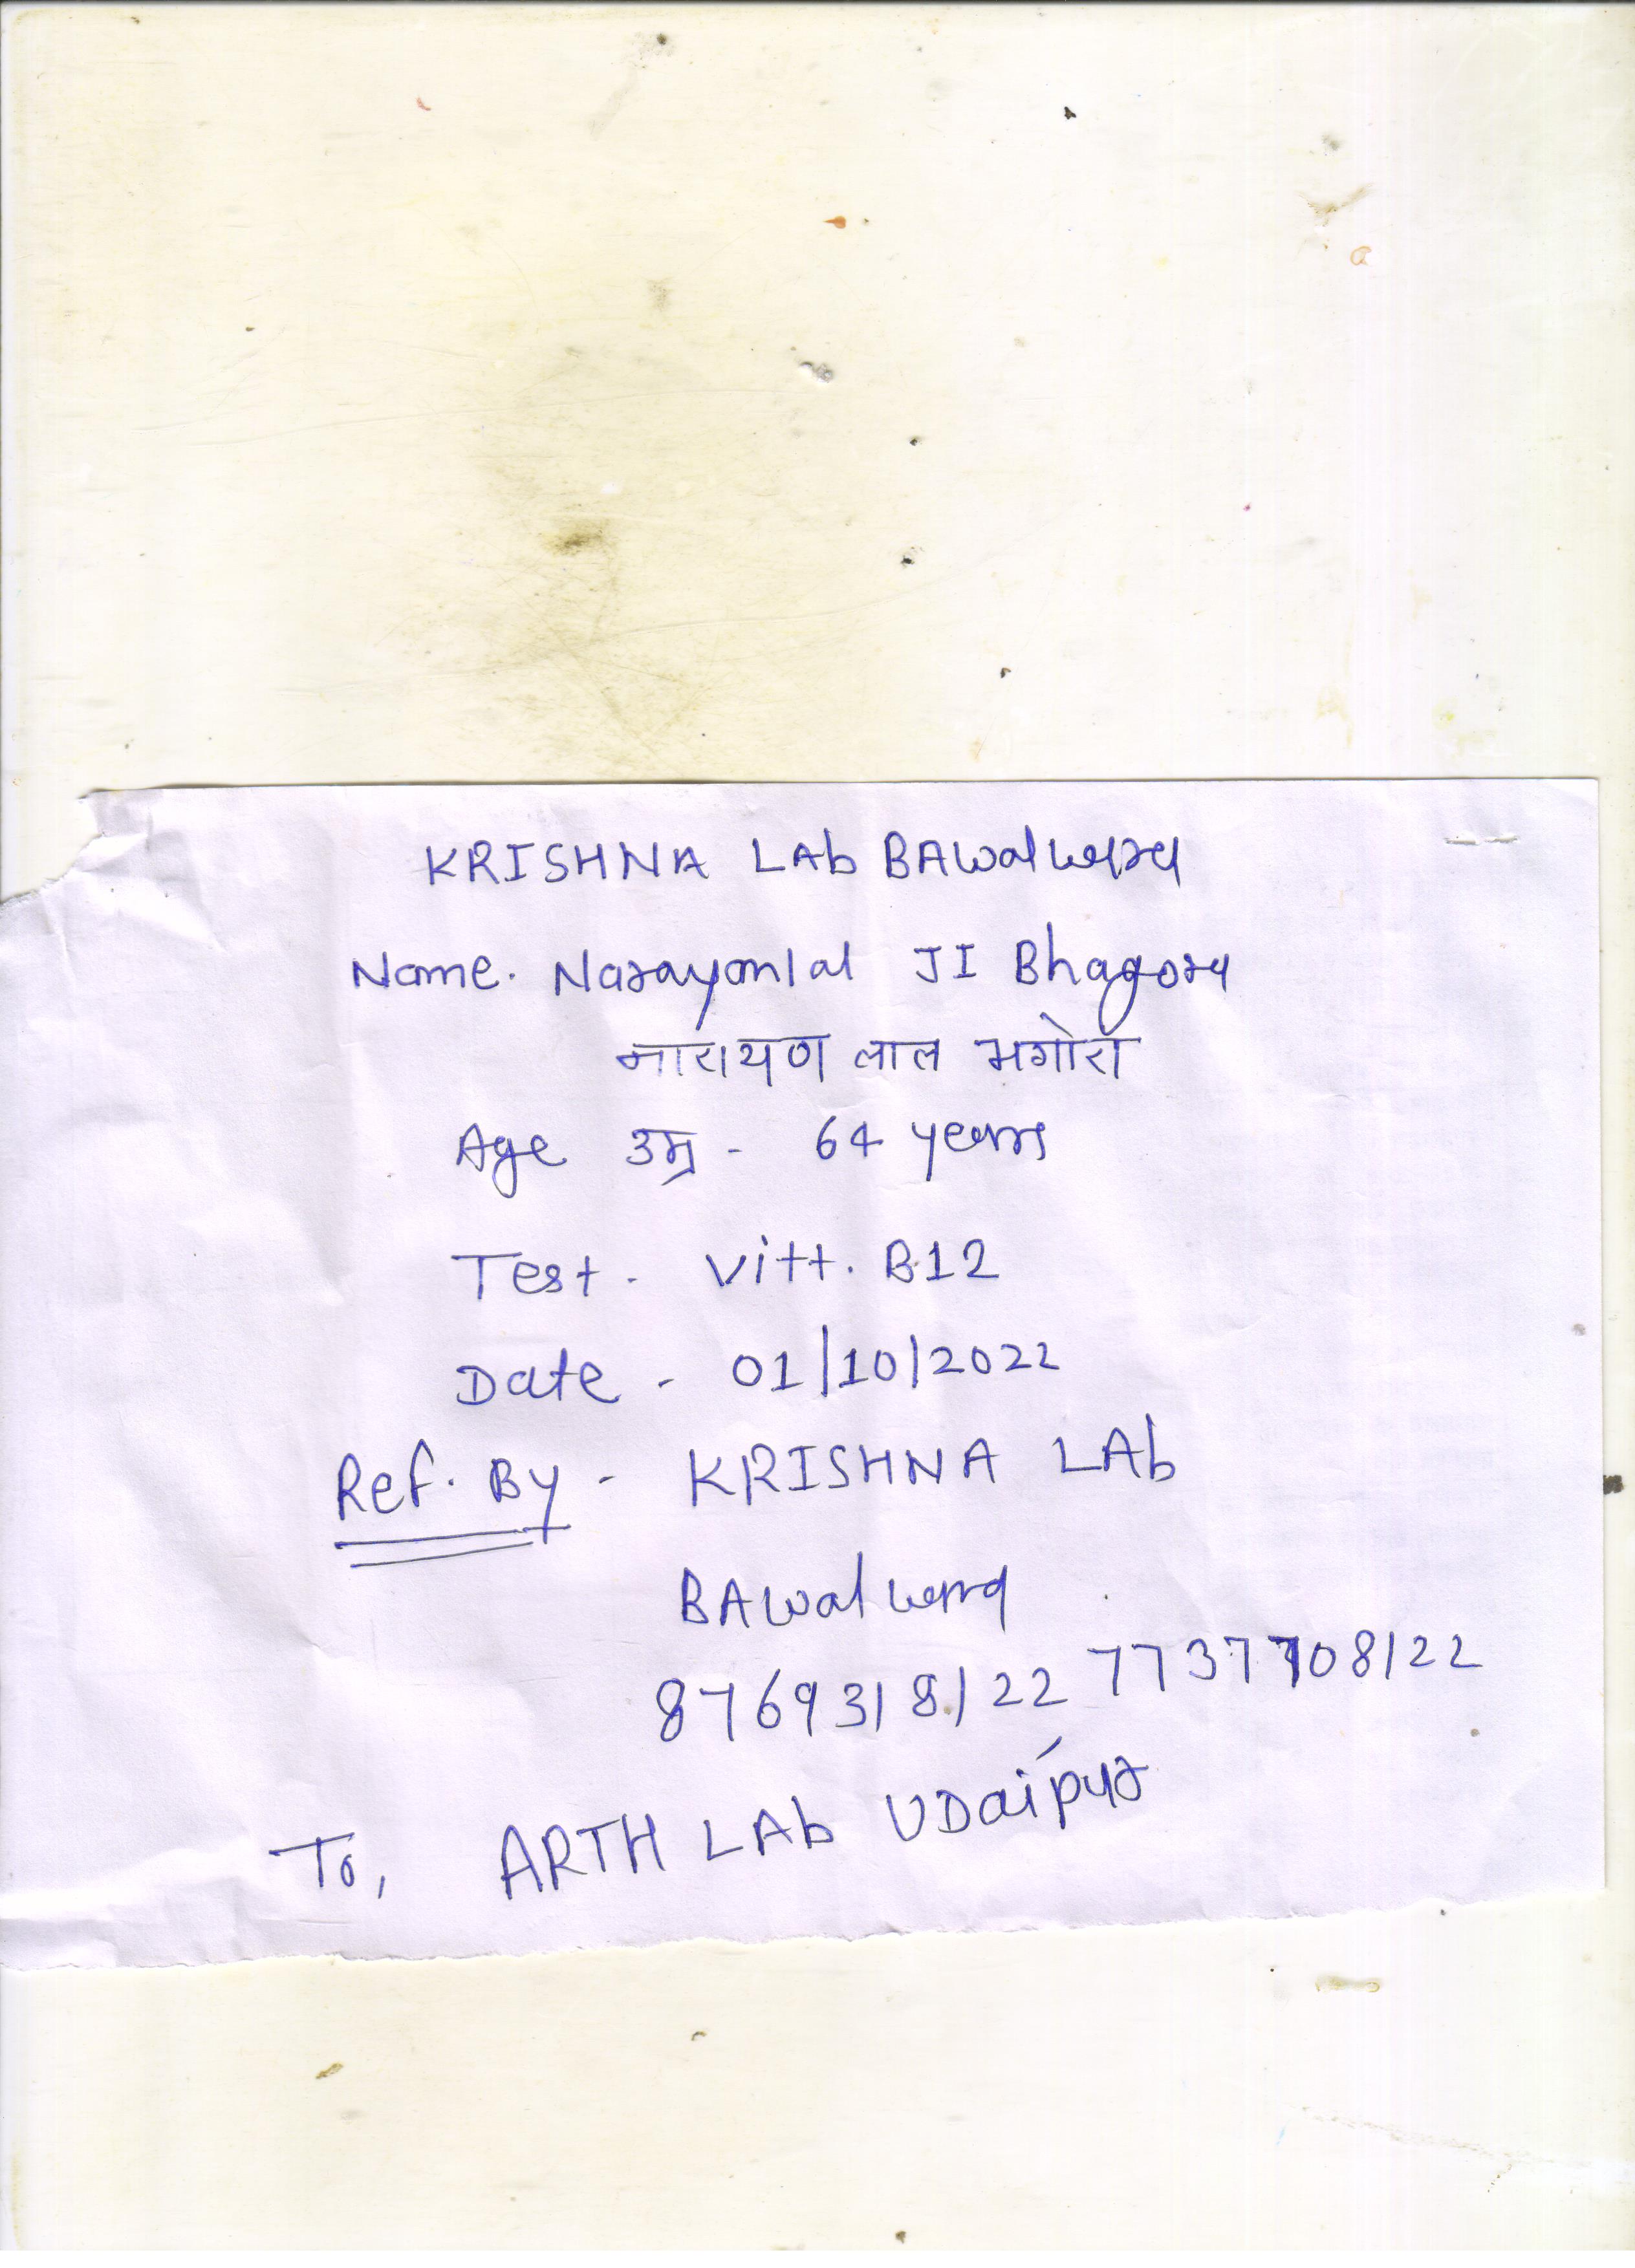 KRISHNA LAb BAwalwara
Name. Narayanlal JI Bhagora
नारायण लाल भगोरा
Age उम्र - 64 years
Test - Vitt. B12
Date - 01/10/2022
Ref. By - KRISHNA LAb
BAwalwara
8769318122 7737708122
To, ARTH LAb UDaipur